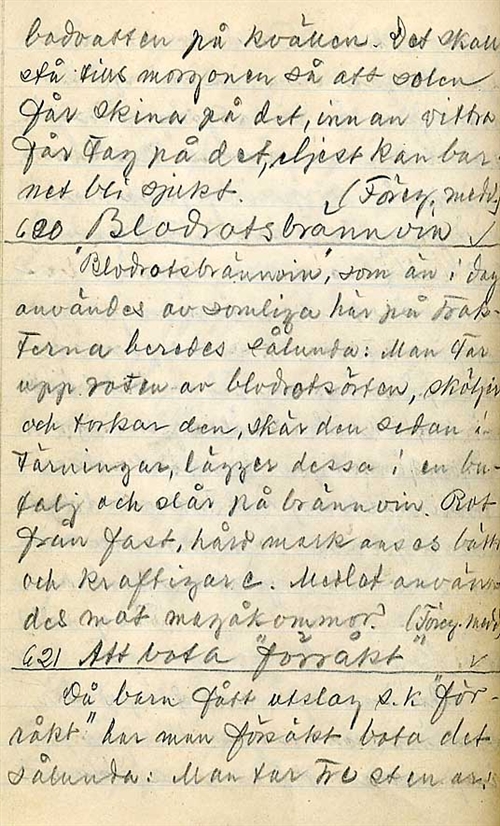 badvatten på kvällen. Det skall
stå tills morgonen så att solen
får skina på det, innan vittra
får tag på det, eljest kan bar-
net bli sjukt. (Föreg. medd.
620 Blodrotsbrännvin ✓
"Blodrotsbrännvin", som än i dag
användes av somliga här på trak-
terna beredes sålunda: Man tar
upp roten av blodrotsörten, sköljer
och torkar den, skär den sedan i
tärningar, lägger dessa i en bu-
talj och slår på brännvin. Rot
från fast, hård mark anses bättre
och kraftigare. Medlet använ-
des mot magåkommor. (Föreg. medd
621 Att bota "förråkt" ✓
Då barn fått utslag s.k "för
råkt" har man försökt bota det
sålunda: Man tar tre stenar